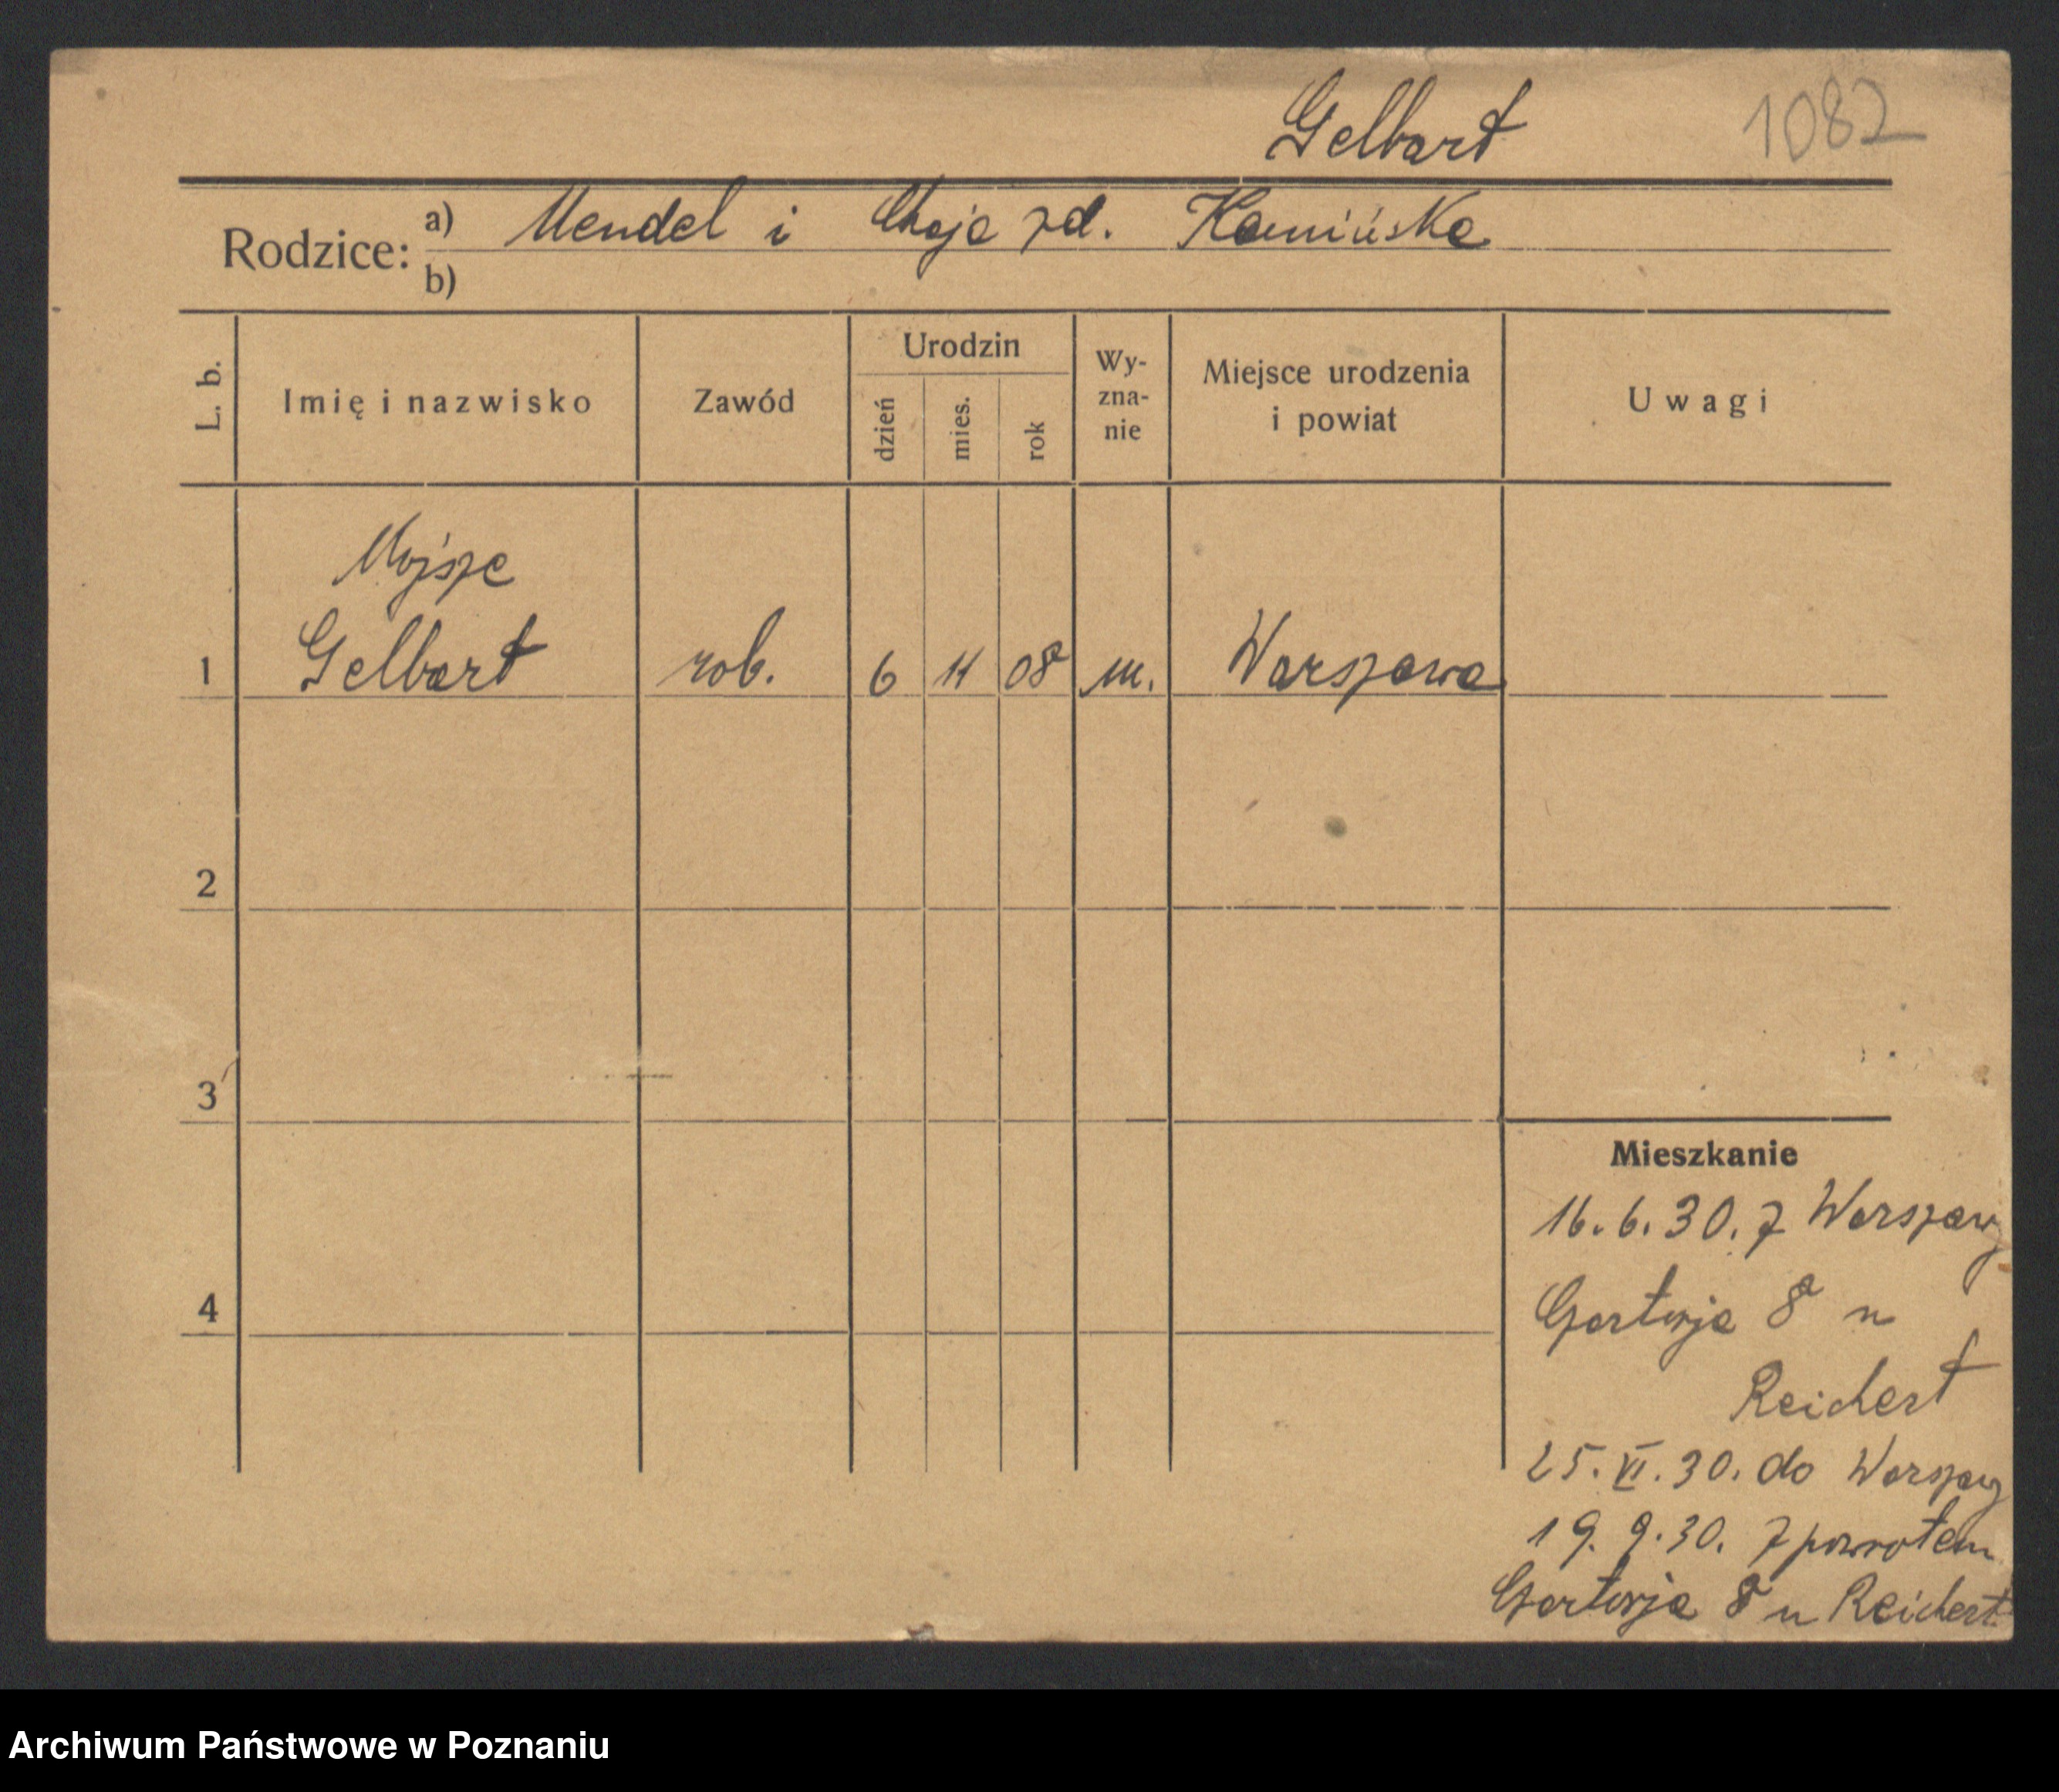 Gelbart 1082
Rodzice: a) Mendel i Chaja zd. Kamińska
b)
L. b. Imię i nazwisko Zawód Urodzin dzień mies. rok Wy-zna-nie Miejsce urodzenia i powiat Uwagi
Mojsze
1 Gelbart rob. 6 11 08 m. Warszawa
2
3
Mieszkanie
16. 6. 30. z Warszawy
4
8 u
Reichert
25. VI. 30. do Warszawy
19. 9. 30. z powrotem
8 u Reichert
Archiwum Państwowe w Poznaniu